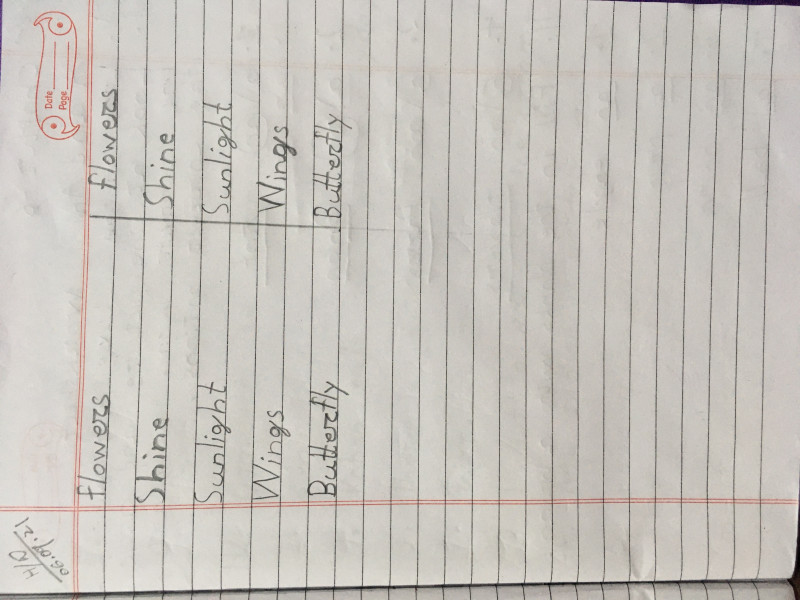 Date
Page
H/D
flowers flowers
Shine Shine
Sunlight Sunlight
Wings Wings
Butterfly Butterfly